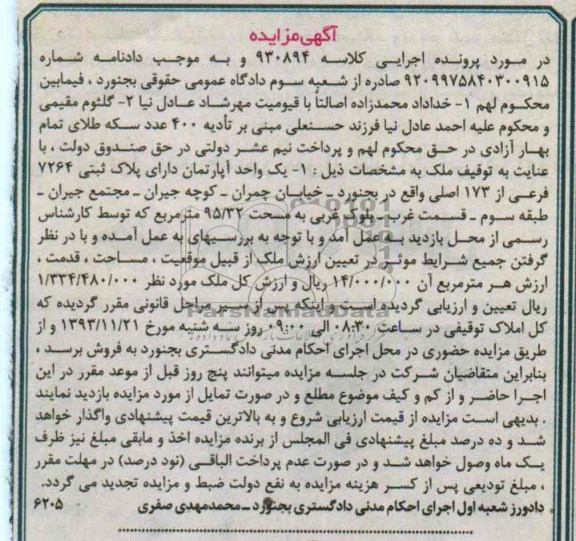 آگهی مزایده
در مورد پرونده اجرایی کلاسه ۹۳۰۸۹۴ و به موجب دادنامه شماره
۹۲۰۹۹۷۵۸۴۰۳۰۰۹۱۵ صادره از شعبه سوم دادگاه عمومی حقوقی بجنورد ، فیمابین
محکوم لهم ۱- خداداد محمدزاده اصالتاً با قیومیت مهرشاد عادل نیا ۲- گلثوم مقیمی
و محکوم علیه احمد عادل نیا فرزند حسنعلی مبنی بر تأدیه ۴۰۰ عدد سکه طلای تمام
بهار آزادی در حق محکوم لهم و پرداخت نیم عشر دولتی در حق صندوق دولت ، با
عنایت به توقیف ملک به مشخصات ذیل : ۱- یک واحد آپارتمان دارای پلاک ثبتی ۷۲۶۴
فرعی از ۱۷۳ اصلی واقع در بجنورد ـ خیابان چمران ـ کوچه جیران ـ مجتمع جیران ـ
طبقه سوم ـ قسمت غرب ـ بلوک غربی به مسحت ۹۵/۳۲ مترمربع که توسط کارشناس
رسمی از محل بازدید به عمل آمد و با توجه به بررسیهای به عمل آمده و با در نظر
گرفتن جمیع شرایط موثر در تعیین ارزش ملک از قبیل موقعیت ، مساحت ، قدمت ،
ارزش هر مترمربع آن ۱۴/۰۰۰/۰۰۰ ریال و ارزش کل ملک مورد نظر ۱/۳۳۴/۴۸۰/۰۰۰
ریال تعیین و ارزیابی گردیده است و اینکه پس از سیر مراحل قانونی مقرر گردیده که
کل املاک توقیفی در ساعت ۰۸:۳۰ الی ۰۹:۰۰ روز سه شنبه مورخ ۱۳۹۳/۱۱/۲۱ و از
طریق مزایده حضوری در محل اجرای احکام مدنی دادگستری بجنورد به فروش برسد ،
بنابراین متقاضیان شرکت در جلسه مزایده میتوانند پنج روز قبل از موعد مقرر در این
اجرا حاضر و از کم و کیف موضوع مطلع و در صورت تمایل از مورد مزایده بازدید نمایند
. بدیهی است مزایده از قیمت ارزیابی شروع و به بالاترین قیمت پیشنهادی واگذار خواهد
شد و ده درصد مبلغ پیشنهادی فی المجلس از برنده مزایده اخذ و مابقی مبلغ نیز ظرف
یک ماه وصول خواهد شد و در صورت عدم پرداخت الباقی (نود درصد) در مهلت مقرر
، مبلغ تودیعی پس از کسر هزینه مزایده به نفع دولت ضبط و مزایده تجدید می گردد.
دادورز شعبه اول اجرای احکام مدنی دادگستری بجنورد ـ محمدمهدی صفری ۶۲۰۵
ParsNamadData